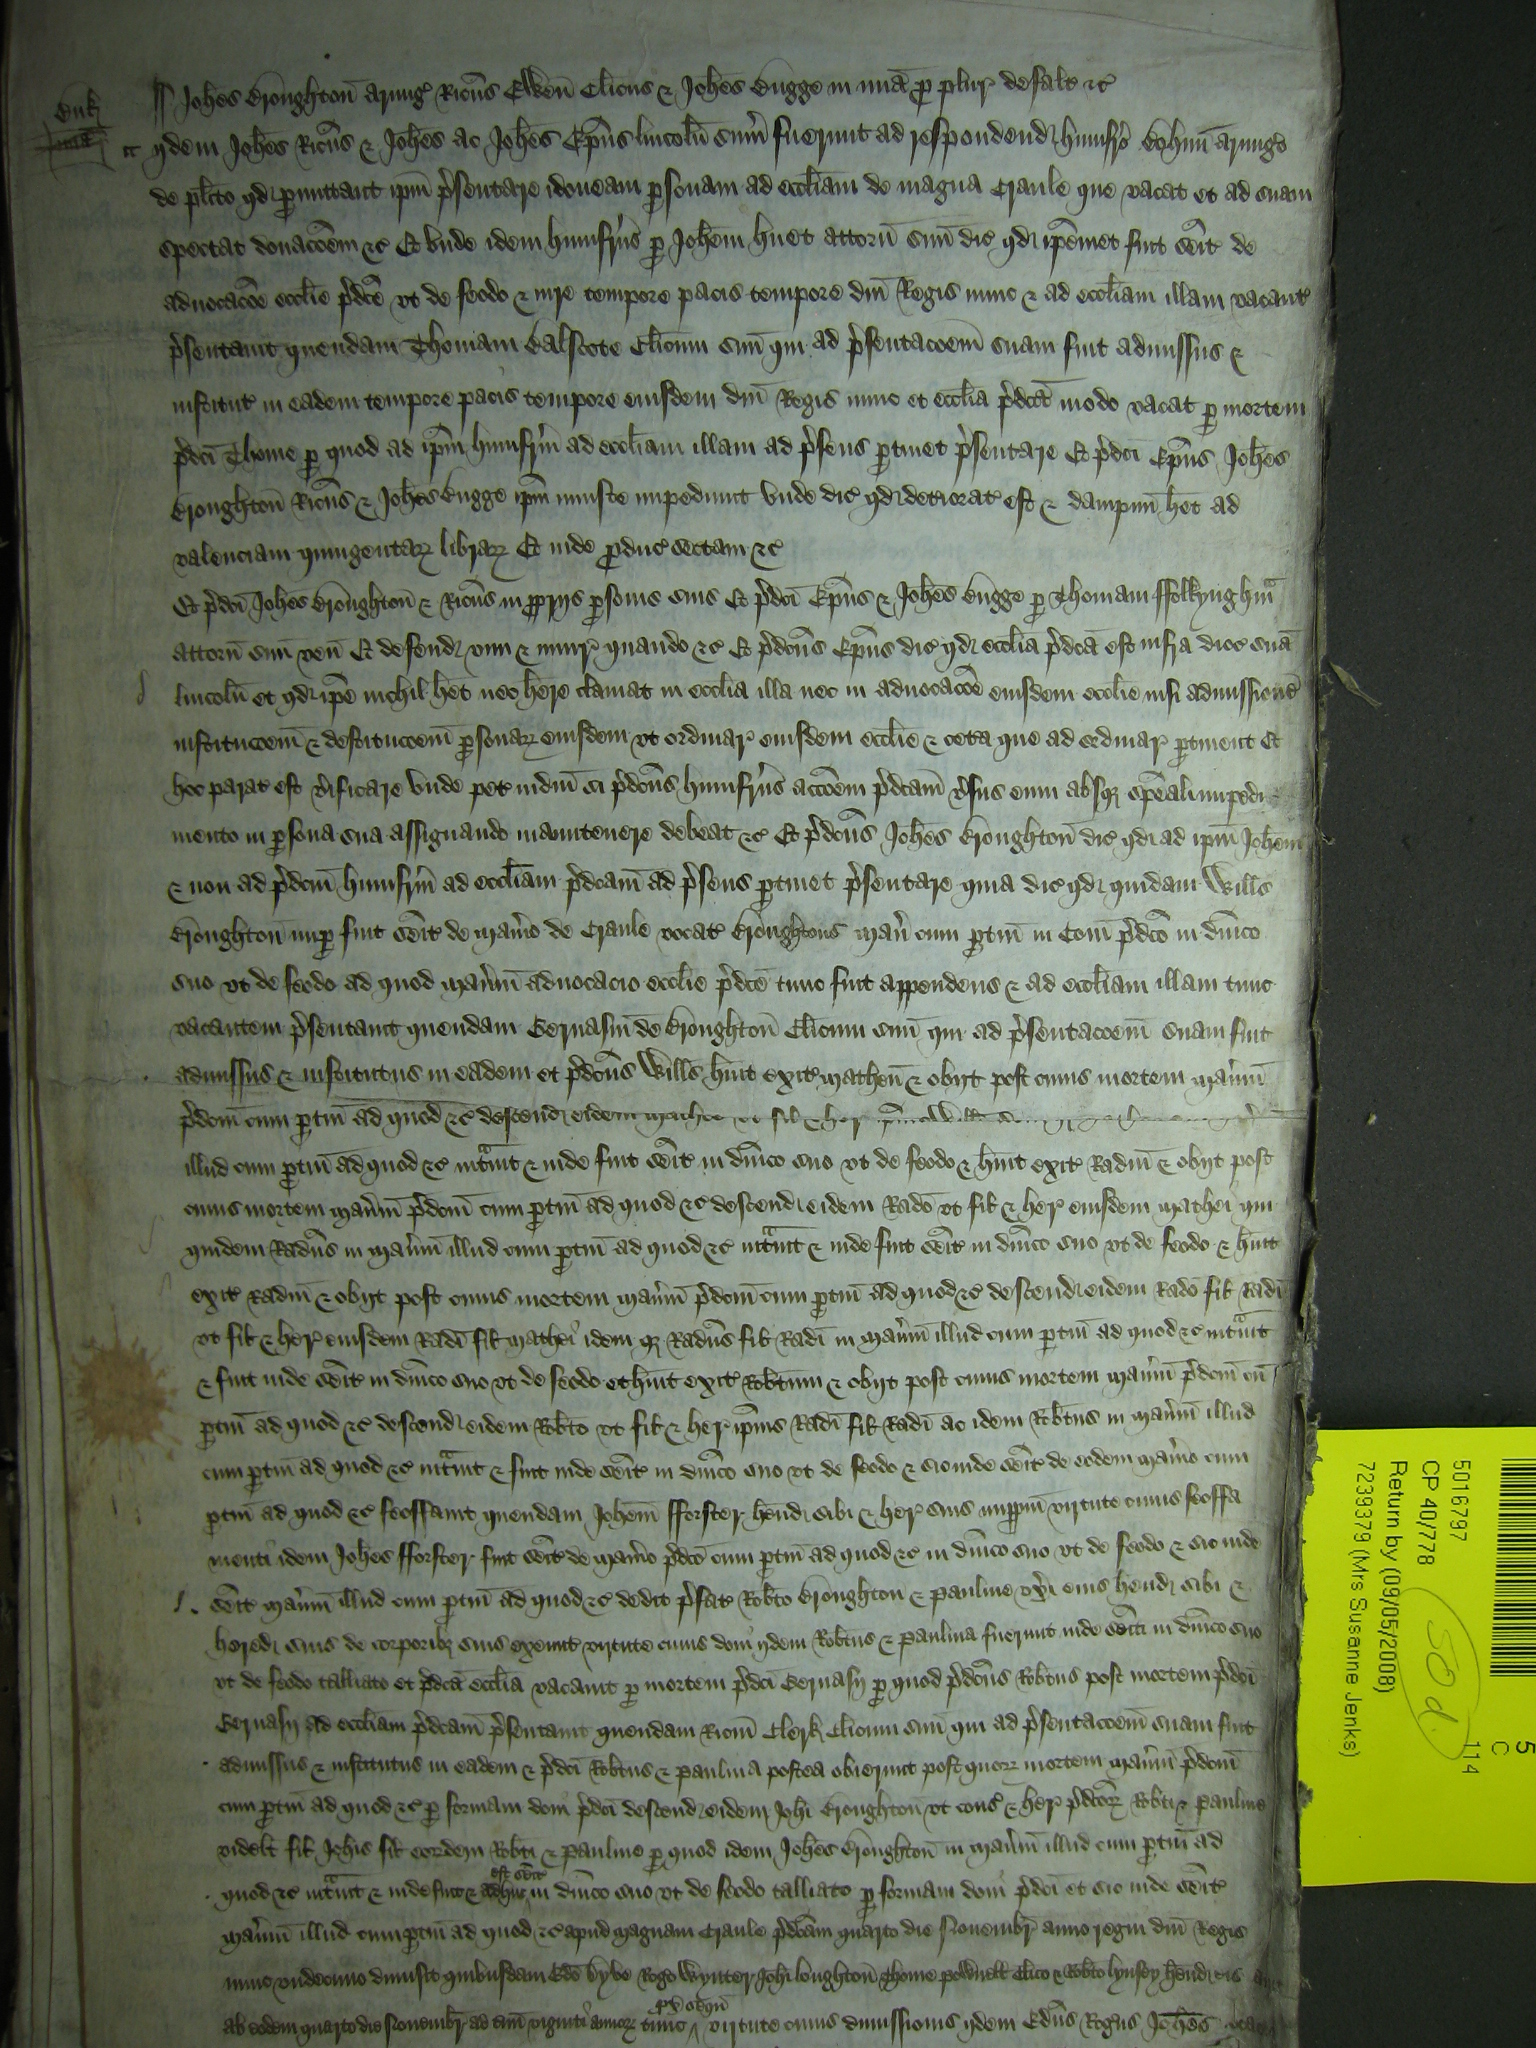 Buk
Joħes Broughton armiġ Ricūs Ewen Clicus & Joħes Bugge in mīa p plur defalt &c
ijdem Joħes Ricūs & Joħes ac Joħes Epūs lincoln̄ sum̄ fuerunt ad respondend humfro Bohun armigo
de plito qd pmittant ipm p̄sentare idoneam psonam ad eccliam de magna Craule que vacat et ad suam
spectat donacōem &c Et unde idem humfrus p Joħem huet attorn̄ suū dic qd ipemet fuit seit de
aduocacōe ecclie p̄dce vt de feodo & iure tempore pacis tempore dn̄i Regis nunc & ad eccliam illam vacant
p̄sentauit quendam Thomam Balscote Clicum suū qui ad p̄sentacōem suam fuit admissus &
institut in eadem tempore pacis tempore eiusdem dn̄i Regis nunc et ecclia p̄dca modo vacat p mortem
p̄dci Thome p quod ad ipm humfrm ad eccliam illam ad p̄sens ptinet p̄sentare Et p̄dci Epūs Joħes
Broughton Ricūs & Joħes Bugge ipm iniuste impediunt unde dic qd detiorat est & dampnū het ad
valenciam quingentar librar Et inde pduc sectam &c
Et p̄dci Joħes Broughton & Ricūs in pprijs psonis suis Et p̄dci Epūs & Joħes Bugge p Thomam ffolkyngham
attorn̄ suū ven̄ Et defend vim & iniur quando &c Et p̄dcus Epūs dic qd ecclia p̄dca est infra dioc suā
lincoln̄ et qd ipe nichil het nec here clamat in ecclia illa nec in aduocacōe eiusdem ecclie nisi admissionē
institucōem & destitucōem psonar eiusdem vt ordinar eiusdem ecclie & ceta que ad ordinar ptinent Et
hoc parat est vificare unde pet iudm si p̄dcus humfrus accōem p̄dcam vsus eum absq spēali impedi
mento in psona sua assignando manutenere debeat &c Et p̄dcus Joħes Broughton dic qd ad ipm Joħem
& non ad p̄dcm humfrm ad eccliam p̄dcam ad p̄sens ptinet p̄sentare quia dic qd quidam Wills
Broughton nup fuit seit de man̄io de Craule vocat Broughtons man̄ cum ptin̄ in Com̄ p̄dco in dn̄ico
suo vt de feodo ad quod man̄iu aduocacio ecclie p̄dce tunc fuit appendens & ad eccliam illam tunc
vacantem p̄sentauit quendam Geruasiu de Broughton Clicum suū qui ad p̄sentacōem suam fuit
admissus & institutus in eadem et p̄dcus Wills huit exit Matheu & obijt post cuius mortem man̄iu
p̄dcm cum ptin̄ ad quod &c descend eidem Matheo vt fil & her
illud cum ptin̄ ad quod &c intrauit & inde fuit seit in dn̄ico suo vt de feodo & huit exit Radm̄ & obijt post
cuius mortem man̄iu p̄dcm cum ptin̄ ad quod &c descend eidem Rado vt fil & her eiusdem Mathei qui
quidem Radus in man̄iu illud cum ptin̄ ad quod &c intrauit & inde fuit seit in dn̄ico suo vt de feodo & huit
exit Radm̄ & obijt post cuius mortem man̄iu p̄dcm cum ptin̄ ad quod &c descend eidem Rado fil Radi
vt fil & her eiusdem Radi fil Mathei idem q Radus fil Radi in man̄iu illud cum ptin̄ ad quod &c intrauit
& fuit inde seit in dn̄ico suo vt de feodo et huit exit Robtum & obijt post cuius mortem man̄iu p̄dcm cū
ptin̄ ad quod &c descend eidem Robto vt fil & her ipius Radi fil Radi ac idem Robtus in man̄iu illud
cum ptin̄ ad quod &c intrauit & fuit inde seit in dn̄ico suo vt de feodo & sic inde seit de eodem man̄io cum
ptin̄ ad quod &c feoffauit quendam Joħem fforster hend sibi & her suis imppm virtute cuius feoffa
menti idem Joħes fforster fuit seit de man̄io p̄dco cum ptin̄ ad quod &c in dn̄ico suo vt de feodo & sic inde
seit man̄iu illud cum ptin̄ ad quod &c dedit p̄fat Robto Broughton & Pauline vxi eius hend sibi &
hered suis de corporibz suis exeunt virtute cuius doni ijdem Robtus & Paulina fuerunt inde seiti in dn̄ico suo
vt de feodo talliato et p̄dca ecclia vacauit p mortem p̄dci Geruasij p quod p̄dcus Robtus post mortem p̄dci
Geruasij ad eccliam p̄dcam p̄sentauit quendam Ricm̄ Clerk Clicum suū qui ad p̄sentacōem suam fuit
admissus & institutus in eadem & p̄dci Robtus & Paulina postea obierunt post quor mortem man̄iu p̄dcm
cum ptin̄ ad quod &c p formam doni p̄dci descend eidem Joħi Broughton vt cons & her p̄dcor Robti & Pauline
videlt fil Joħis fil eordem Robti & Pauline p quod idem Joħes Broughton in man̄iu illud cum ptin̄ ad
quod &c intrauit & inde fuit & adhuc est seit in dn̄ico suo vt de feodo talliato p formam doni p̄dci et sic inde seit
man̄iu illud cum ptin̄ ad quod &c apud magnam Craule p̄dcam quarto die Nouembr anno regni dn̄i Regis
nunc vndecimo dimisit quibusdam Edo Rogo Wynter Joħi loughton Thome Clico & Robto lynsey hend eis
ab eodem quarto die Nouembr ad tm̄ viginti annor tunc px sequ virtute cuius dimissionis ijdem Edus Rogus Joħes
5016797
CP 40/778
Return by (09/05/2008)
7239379 (Mrs Susanne Jenks)
50 d.
114
C
5